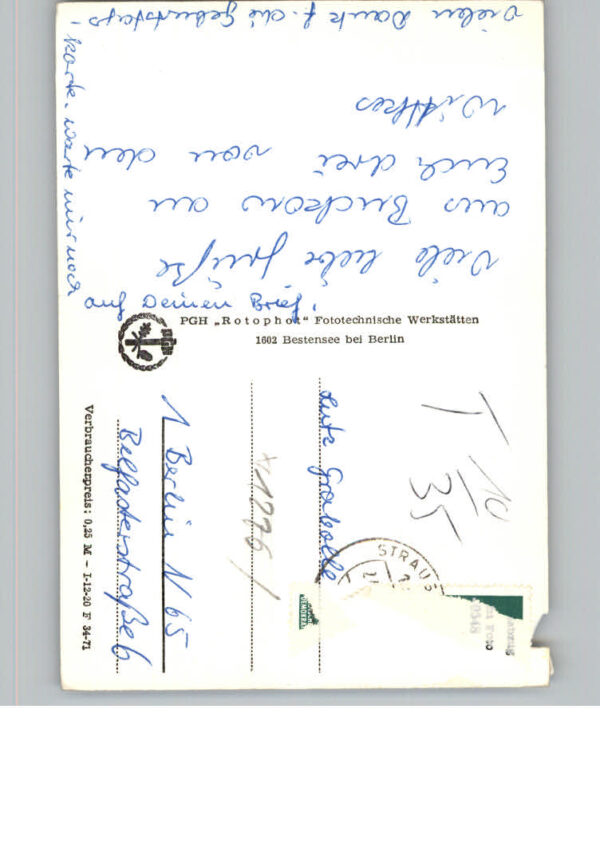 Viele liebe Grüße
aus Buckow an
Euch drei von den
Wittkes
Vielen Dank f. die Geburtstags-
karte. Warte nur noch
auf Deinen Brief!
PGH „Rotophot“ Fototechnische Werkstätten
1602 Bestensee bei Berlin
Verbraucherpreis: 0,25 M – I-12-20 F 34-71
T 10/35
STRAUS
Lutz Grabolle
1 Berlin N 65
Belfasterstraße 6